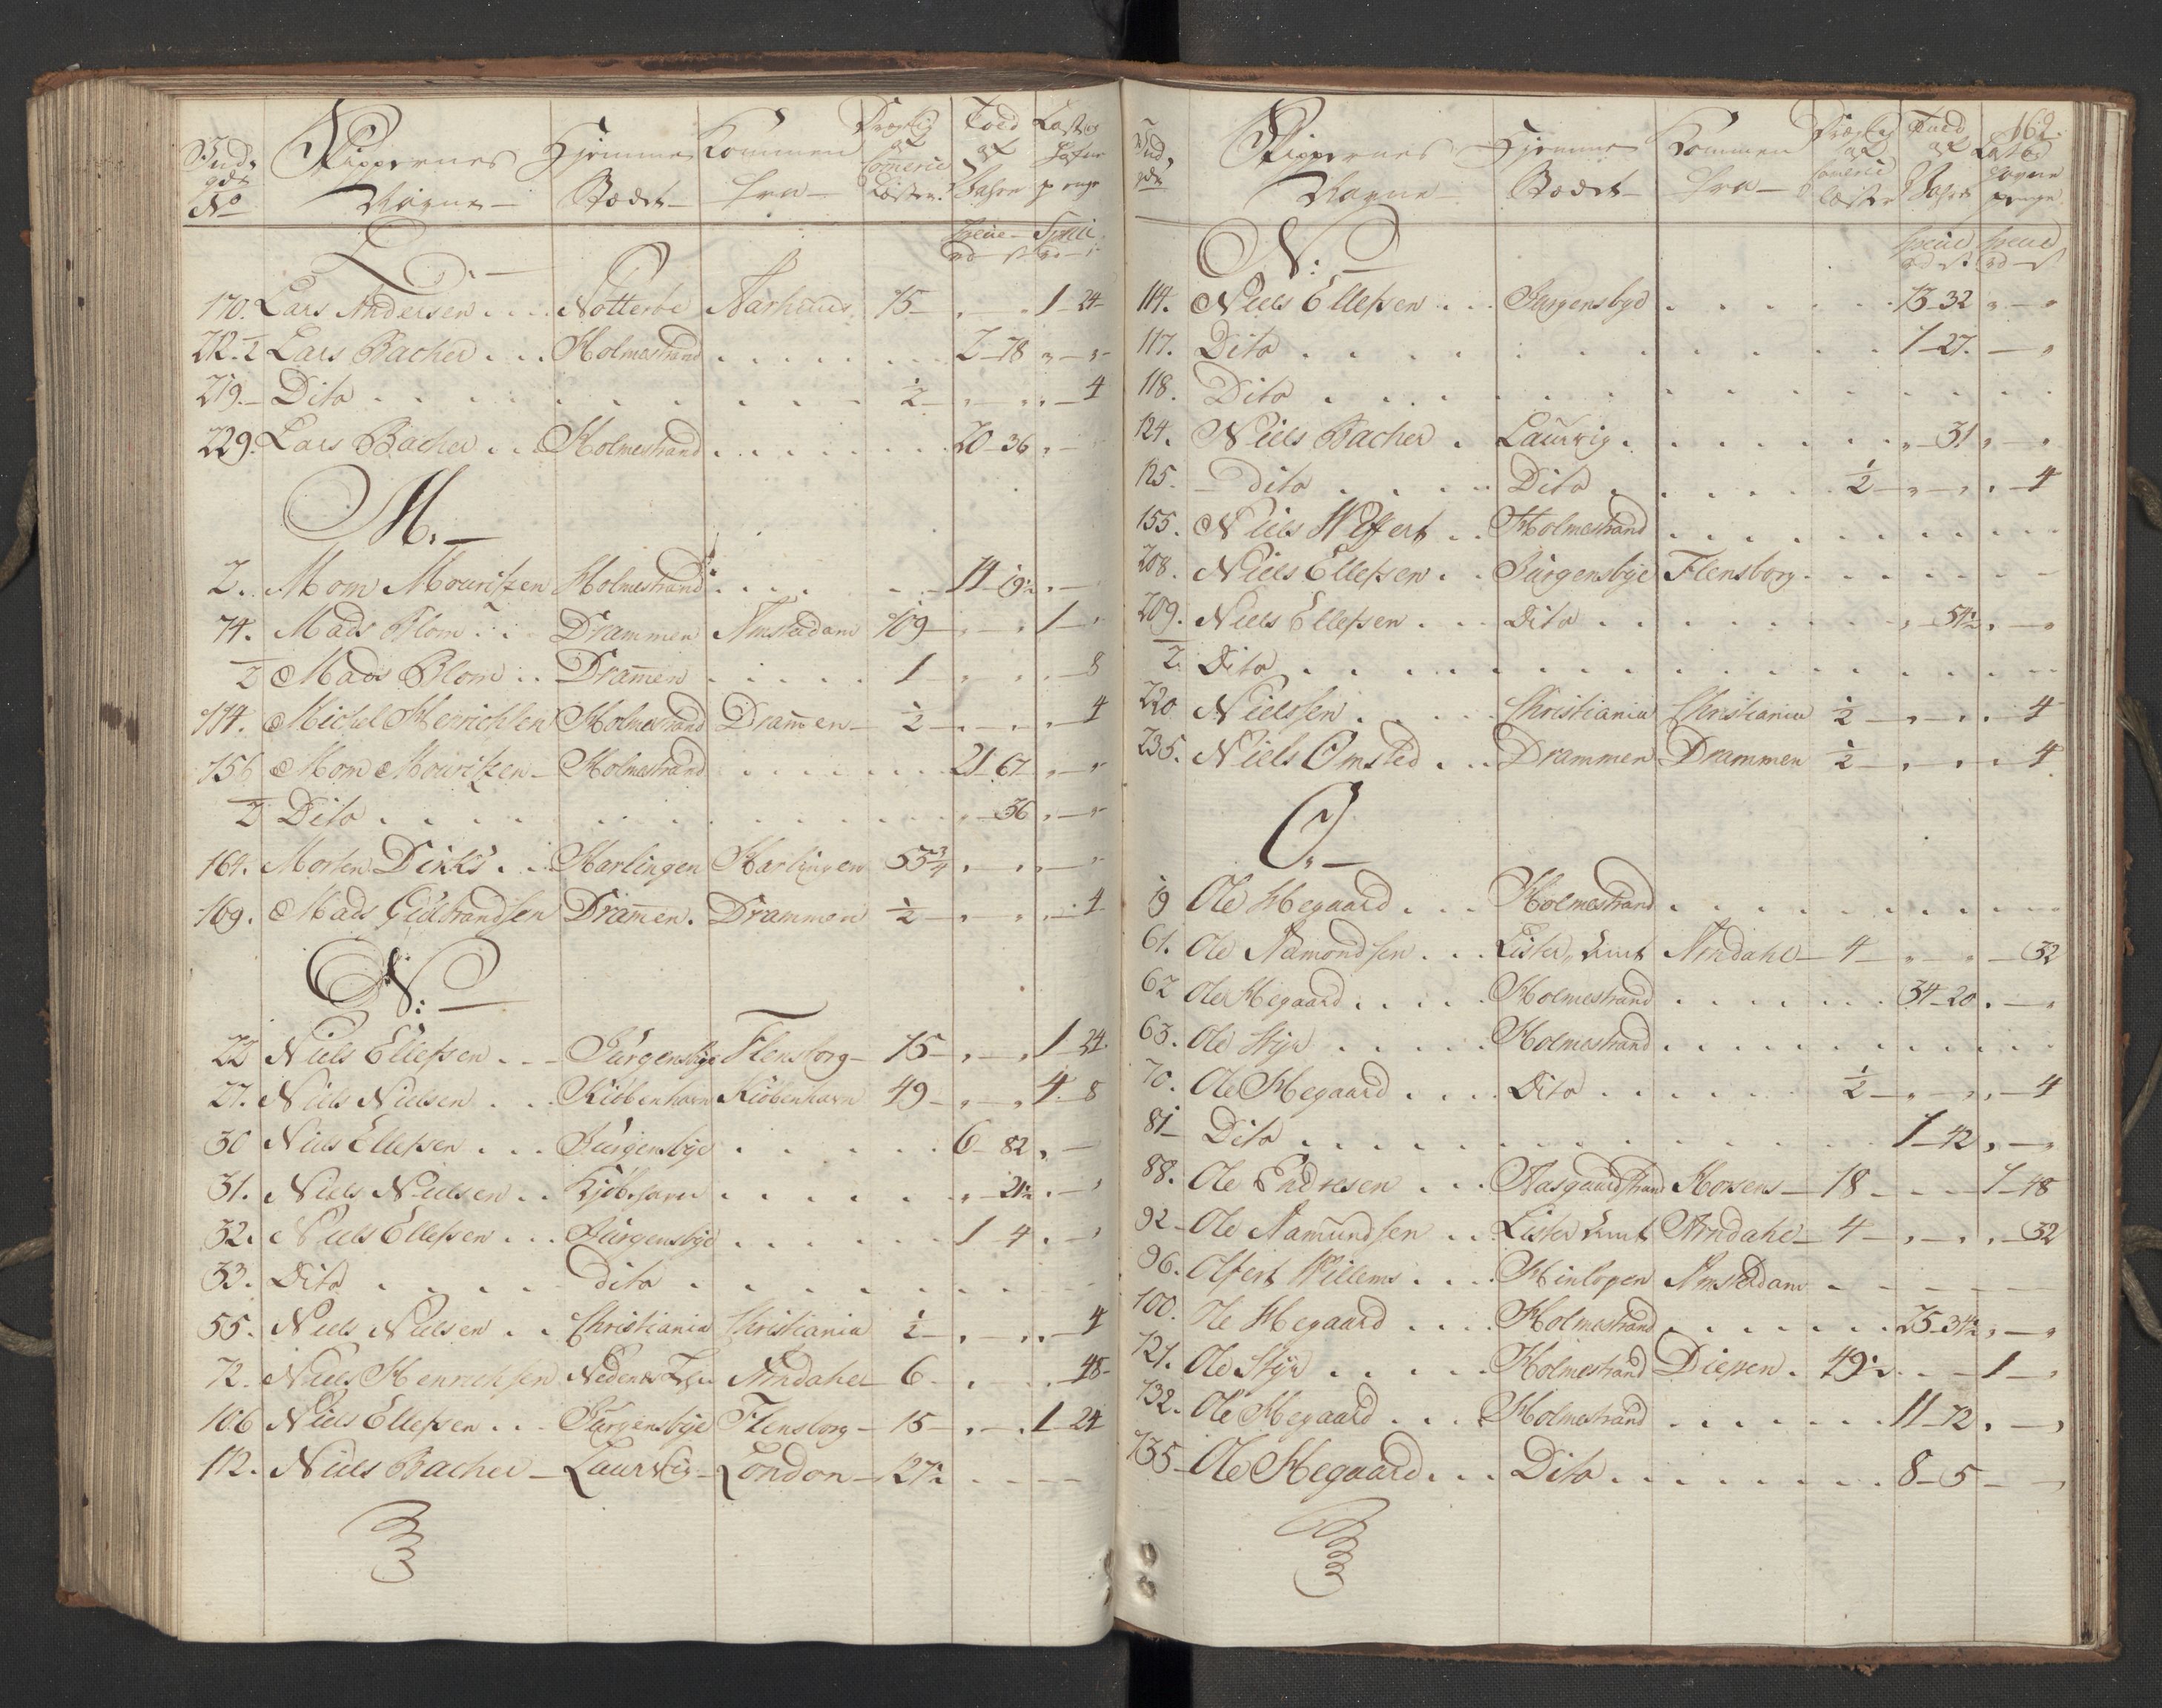 Indg. No Skippernes Navne Hjemme Stædet Kommen fra Drægtig af Comerce Læster Told af Vahre Last og Fyrpenge
Specie Specie
L.
170. Lars Andersen Nötteröe Aarhuus 15 1 24
212.2 Lars Bacher Holmestrand 2 78
219. Dito ½ 4
229. Lars Bacher Holmestrand 20 36
M.
2. Mom Mouritzen Holmestrand 14 19½
74. Mads Blom Drammen Amsterdam 109 1
2 Mads Blom Dram̄en 1 8
114. Michel Henrichsen Holmestrand Dram̄en ½ 4
156 Mom Mouritzen Holmestrand 21 67
2 Dito 36
164. Morten Dirks Harlingen Harlingen 55¾
169. Mads Guldbrandsen Dram̄en Drammen ½ 4
N.
22 Niels Ellefsen Jürgensbye Flensborg 15 1 24
27. Niels Nielsen Kiöbenhavn Kiöbenhavn 49 4 8
30 Niels Ellefsen Jürgensbye 6 82
31. Niels Nielsen Kjöbhavn 21½
32. Niels Ellefsen Jürgensbye 1 4
33. Dito dito
55. Niels Nielsen Christiania Christiania ½ 4
72. Niels Henrichsen Nedenes Arndahl 6 48
106 Niels Ellefsen Jürgensbye Flensborg 15 1 24
112. Niels Bacher Laurvig London 127½
162.
Indg. Skippernes Navne Hjemme Stædet Kommen fra Drægtig af Comerce Læster Told af Vahre Last og Havne penge
Specie Specie
N.
114. Niels Ellefsen Jürgensbye 13 32
117. Dito 1 27.
118. Dito
124. Niels Bacher Laurvig 31
125. dito Dito ½ 4
155. Niels Wiffert Holmestrand
208. Niels Ellefsen Jürgensbye Flensborg
209. Niels Ellefsen Dito 54½
2 Dito
220 Nielssen Christiania Christiania ½ 4
235. Niels Omsted Drammen Drammen ½ 4
O.
19 Ole Hegaard Holmestrand
61. Ole Aamondsen Lister Amt Arndahl 4 32
62 Ole Hegaard Holmestrand 34 20
63. Ole Styr Holmestrand
70. Ole Hegaard Dito ½ 4
81 Dito 1 42
88. Ole Endresen Aasgaardstrand Horsens 18 1 48
92 Ole Aamundsen Lister Amt Arndahl 4 32
96. Olfert Willems Hinlopen Amsterdam
100. Ole Hegaard Holmestrand 25 34½
121. Ole Styr Holmestrand Diepen 49½ 1
132. Ole Hegaard Holmestrand 11 72
135 Ole Hegaard Dito 8 5